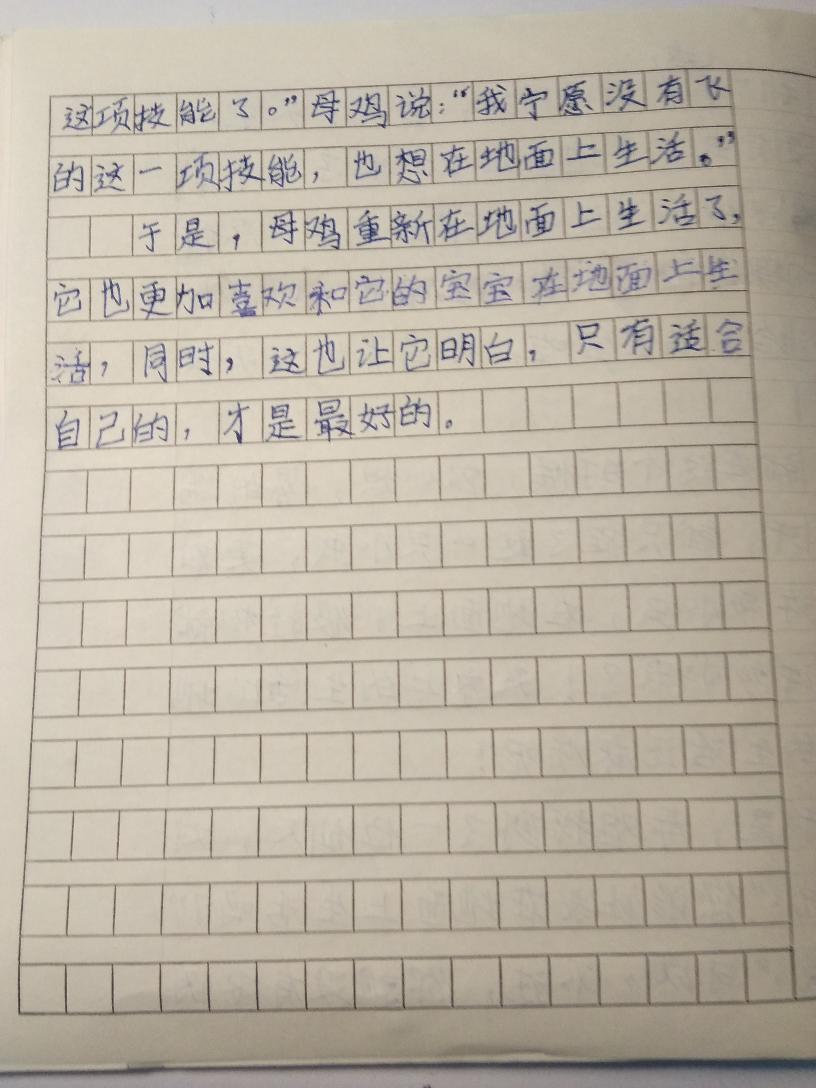 这项技能了。”母鸡说：“我宁愿没有飞
的这一项技能，也想在地面上生活。”
于是，母鸡重新在地面上生活了，
它也更加喜欢和它的宝宝在地面上生
活，同时，这也让它明白，只有适合
自己的，才是最好的。